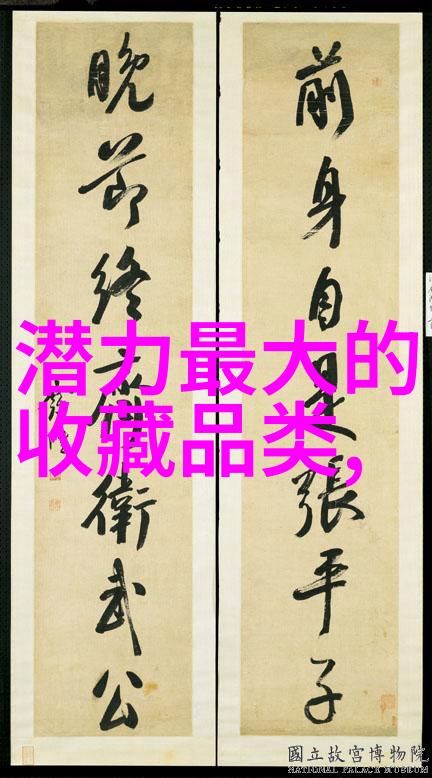 前身自是張平子
晚節終
衛武公
潜力最大的
收藏品类,
國立故宮博物院
NATIONAL PALACE MUSEUM